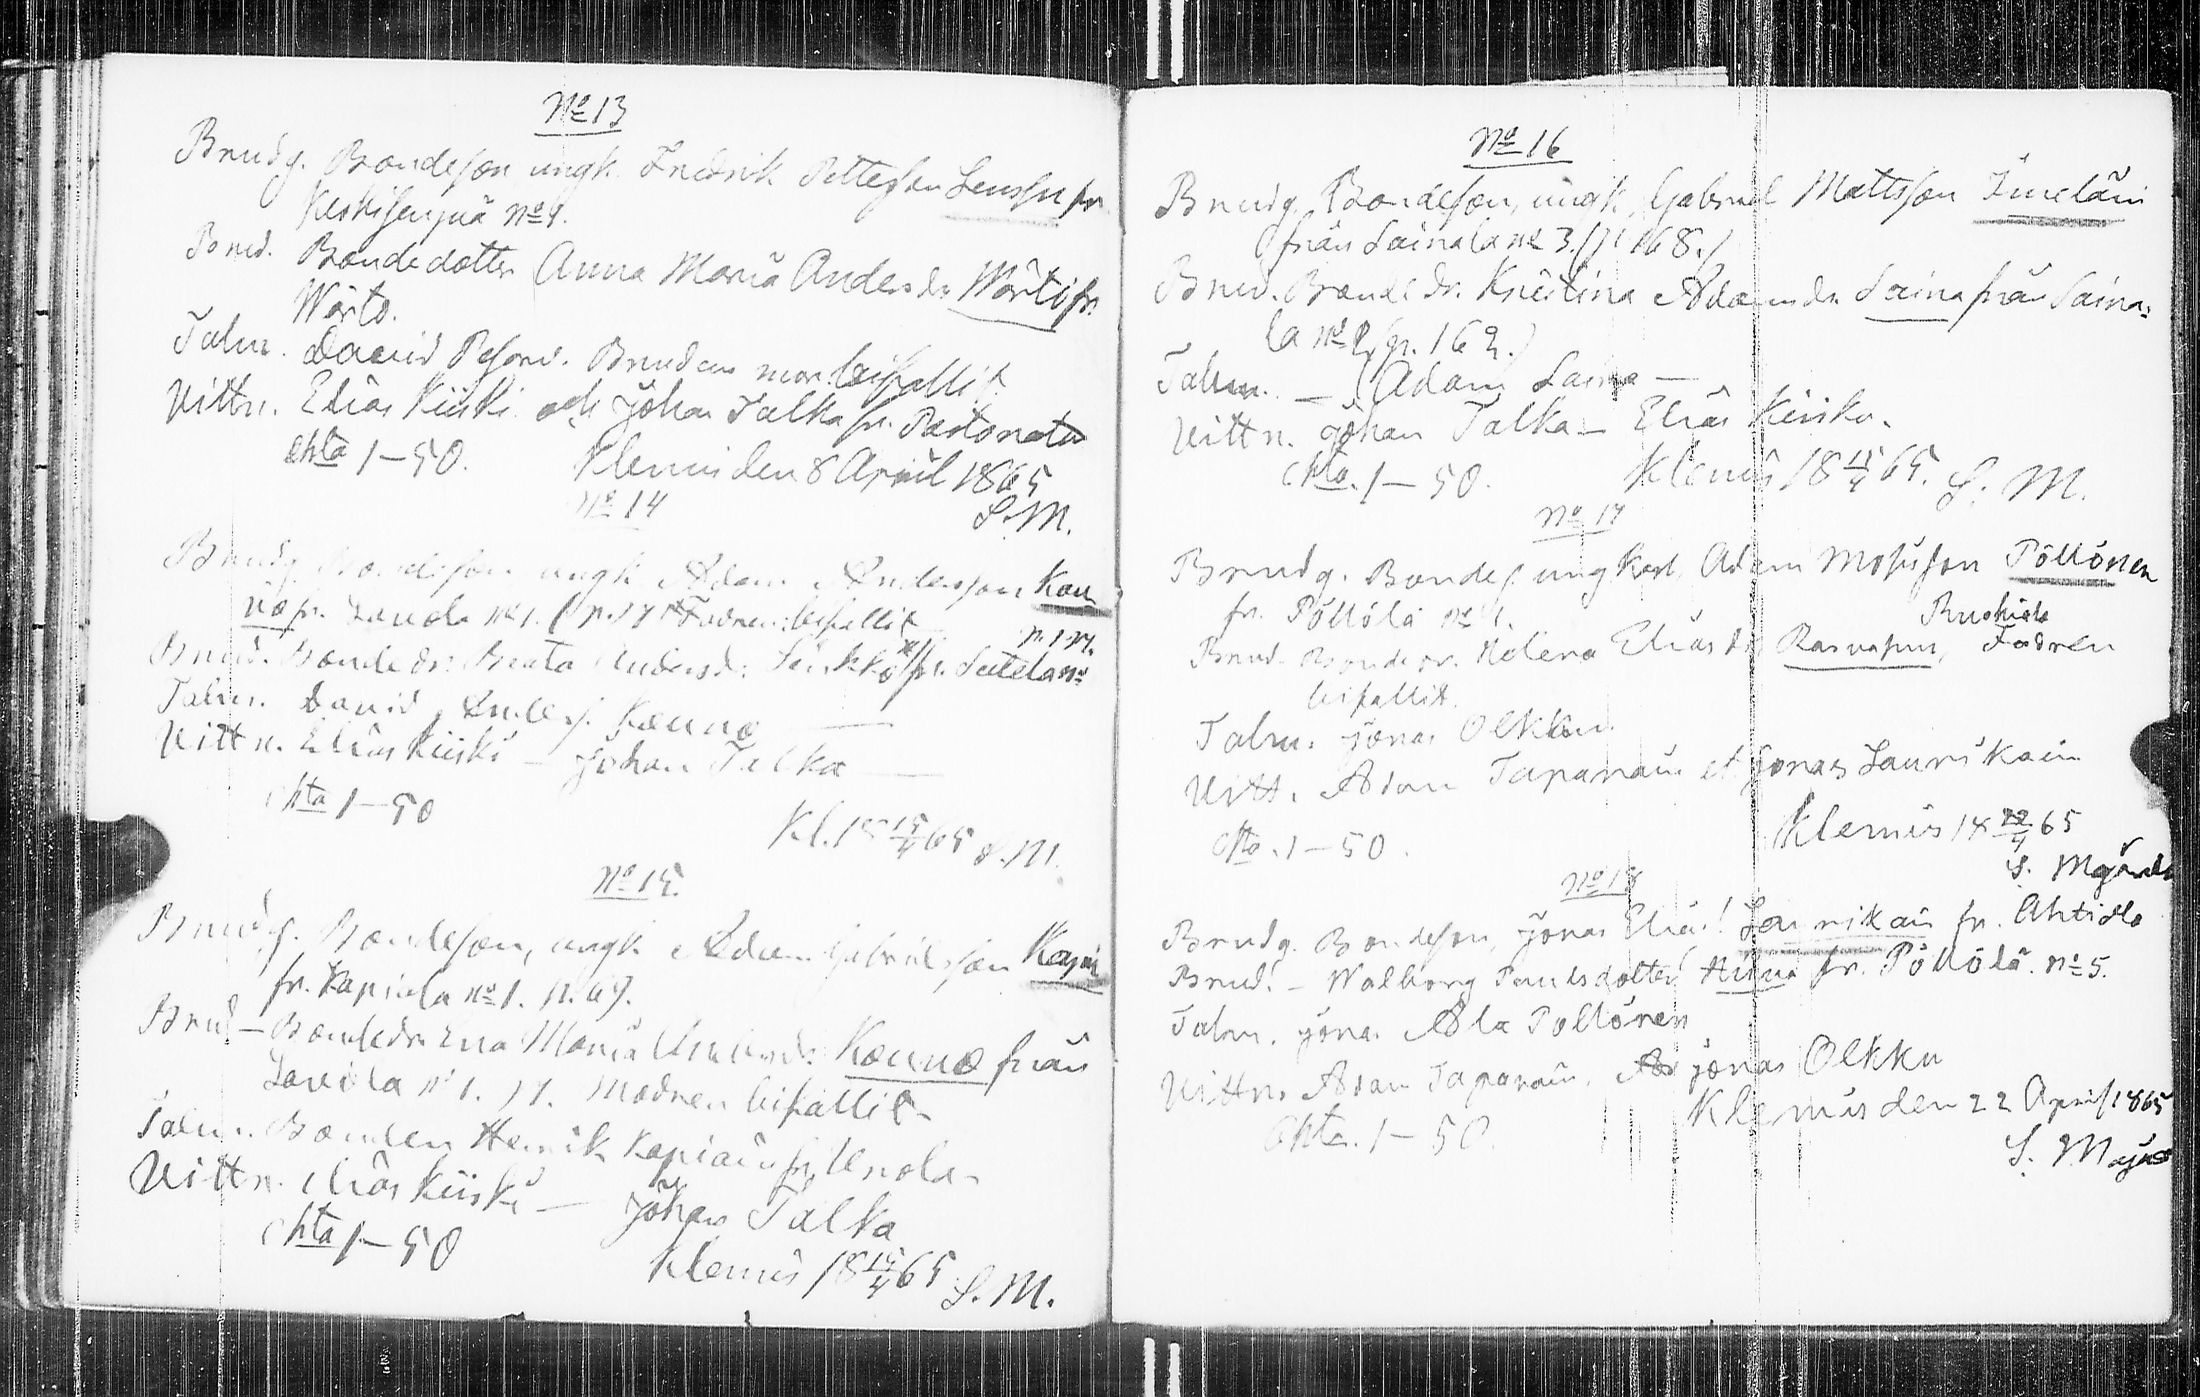 No 13
Brudg. Bondeson ungk. Fredrik Petterson Lensu fr.
Keskisenjuä No 4.
Brud. Bondedotter Anna Maria Andersdr. Wörti fr.
Wörtö.
Talm. David Brudens mor bifallit
Vittn. Elias Kiiski och Johan Talka fr. Pastoratet
Chta 1–50. Klemis den 8 April 1865
S. M.
No 14
Brudg. Bondeson ungk. Adam Andersson Kau
no fr. Lavola No 1. (p. 17 Fadren bifallit
p. 171.
Brud. Bondedr. Beata Andersdr. fr. Sutela No
Talm. David Anders. Kauno —
Vittn. Elias Kiiski – Johan Talka —
Chta 1–50
Kl. 18 15/4 65 S. M.
No 15.
Brudg. Bondeson, ungk. Adam Gabrielsson Kapia
fr. Kapiala No 1. p. 67.
Brud – Bondedr. Eva Maria Andersdr. Kauno från
Lavola No 1. 17. Modren bifallit –
Talm. Bonden Henrik Kapiain fr. Unola –
Vittn. Elias Kiiski – Johan Talka
Chta 1–50
Klemis 18 15/4 65 S. M.
No 16
Brudg. Bondeson, ungk. Gabriel Mattsson Imeläin
från Sainala No 3. (p. 168.)
Brud. Bondedr. Kristina Adamsdr. Saina från Saina-
la No 2 (p. 162.)
Talm. – Adam Saina —
Vittn. Johan Talka – Elias Kiiski.
Chta. 1–50. Klemis 18 15/4 65. S. M.
No 17
Brudg. Bondes. ungkarl Adam Mosisson Pöllönen
fr. Pöllölä No 1.
Brud. Bondedr. Helena Eliasdr. Rasvapuu, Fadren
bifallit.
Talm. Jonas Olkku
Vitt. Adam Tapanain et Jonas Laurikain
Chta. 1–50.
Klemis 18 22/4 65
S.
No 18
Brudg. Bondeson, Jonas Elias! Laurikain fr. Ahtiala
Brud. – Walborg Paulsdotter fr. Pöllölä. No 5.
Talm. Jonas Ala Pöllönen
Vittn. Adam Tapanain, Jonas Olkku
Klemis den 22 April 1865
Chta. 1–50.
S.